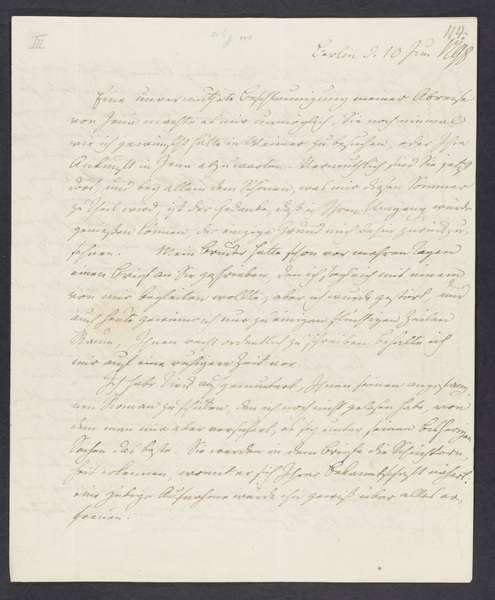 114.
III
Berlin d. 10 Jun 1798
Eine unvermuthete Beschleunigung meiner Abreise
von Jena machte es mir unmöglich, Sie noch einmal
wie ich gewünscht hatte in Weimar zu besuchen, oder Ihre
Ankunft in Jena abzuwarten. Vermuthlich sind Sie jetzt
dort, und bey allem dem Schönen, was mir diesen Sommer
zu Theil wird, ist der Gedanke, daß ich Ihren Umgang würde
genießen können, der einzige Grund mich dahin zurückzu-
sehnen. Mein Bruder hatte schon vor mehren Tagen
einen Brief an Sie geschrieben, den ich sogleich mit einem
von mir begleiten wollte, aber ich wurde gestört, und
auch heute gewinne ich nur zu einigen flüchtigen Zeilen
Raum, Ihnen recht ordentlich zu schreiben behalte ich
mir auf eine ruhigere Zeit vor.
Ich habe Tieck aufgemuntert, Ihnen seinen angefang-
nen Roman zu schicken, den ich noch nicht gelesen habe, von
dem man mir aber versichert, es sey unter seinen bisherigen
Sachen das beste. Sie werden in dem Briefe die Schüchtern-
heit erkennen, womit er sich Ihrer Bekanntschaft nähert,
eine gütige Aufnahme würde ihn gewiß über alles er-
freuen.